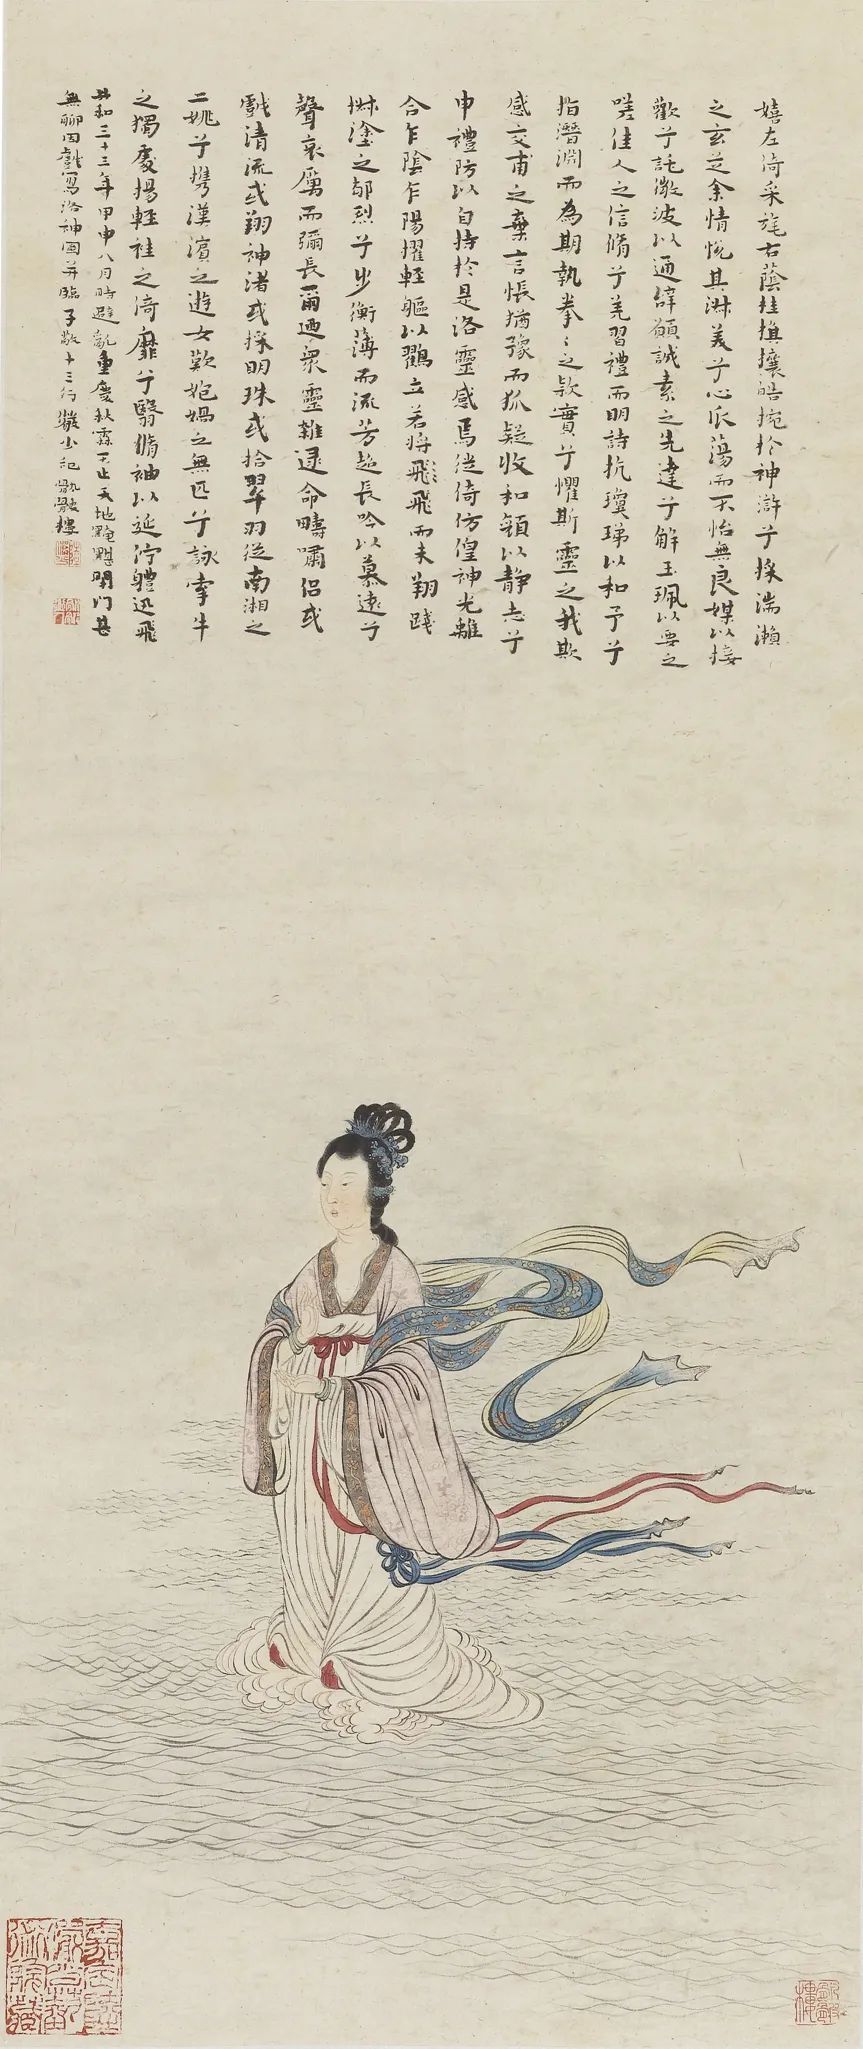 嬉左倚采旄右蔭桂旗攘皓捥於神滸兮採湍瀨
之玄芝余情悅其淋美兮心振蕩而不怡無良媒以接
歡兮託微波以通辭願誠素之先達兮解玉珮以要之
嗟佳人之信脩兮羌習禮而明詩抗瓊珶以和予兮
指潛淵而為期執拳〻之欵實兮懼斯靈之我欺
感交甫之棄言悵猶豫而狐疑收和顏以静志兮
申禮防以自持於是洛靈感焉徙倚仿偟神光離
合乍陰乍陽擢輕軀以鸖立若將飛飛而未翔踐
椒塗之郁烈兮步衡薄而流芳超長吟以慕遠兮
聲哀厲而彌長爾迺衆靈雜遝命疇嘯侶或
戲清流或翔神渚或採明珠或拾翠羽從南湘之
二姚兮携漢濱之遊女歎炰媧之無匹兮詠牽牛
之獨處揚輕袿之倚靡兮翳脩袖以延佇軆迅飛
共和三十三年甲申八月時避亂重慶秋霖不止天地黤黮閉門甚
無聊因戲寫洛神圖并臨子敬十三行 少記